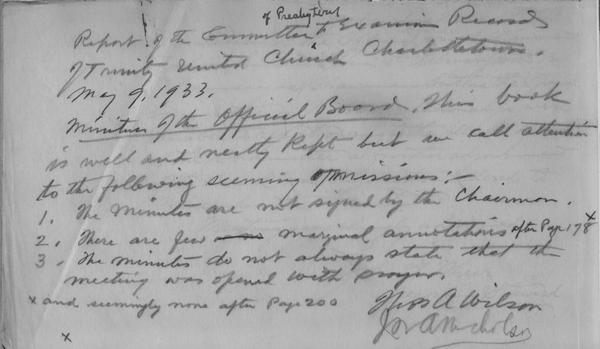 of Presbytery
Report of the Committee to Examine Records
of Trinity United Church Charlottetown.
May 9, 1933.
Minutes of the Official Board. This book
is well and neatly kept but we call attention
to the following seeming ommissions:-
1. The minutes are not signed by the Chairman.
2. There are few marginal annotations after Page 178 x
3. The minutes do not always state that the
meeting was opened with prayer.
x and seemingly none after Page 200
Thos A Wilson
A Nicholson
x